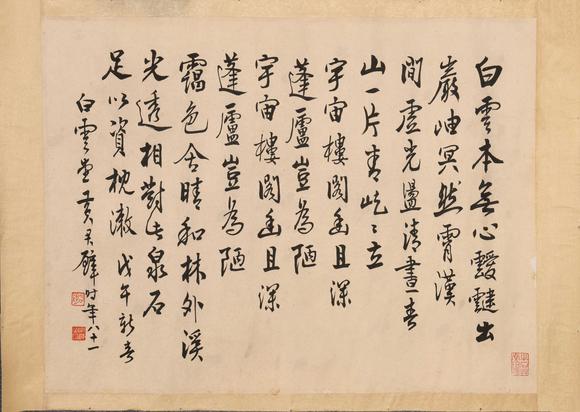 白雲本無心靉靆出
巖岫冥然霄漢
間虛光盪清晝春
山一片青屹〻立
宇宙樓閣幽且深
蓬廬豈為陋
宇宙樓閣幽且深
蓬廬豈為陋
靄色含晴和林外溪
光透相對此泉石
足以資枕漱 戊午新春
白雲堂黃君璧時年八十一